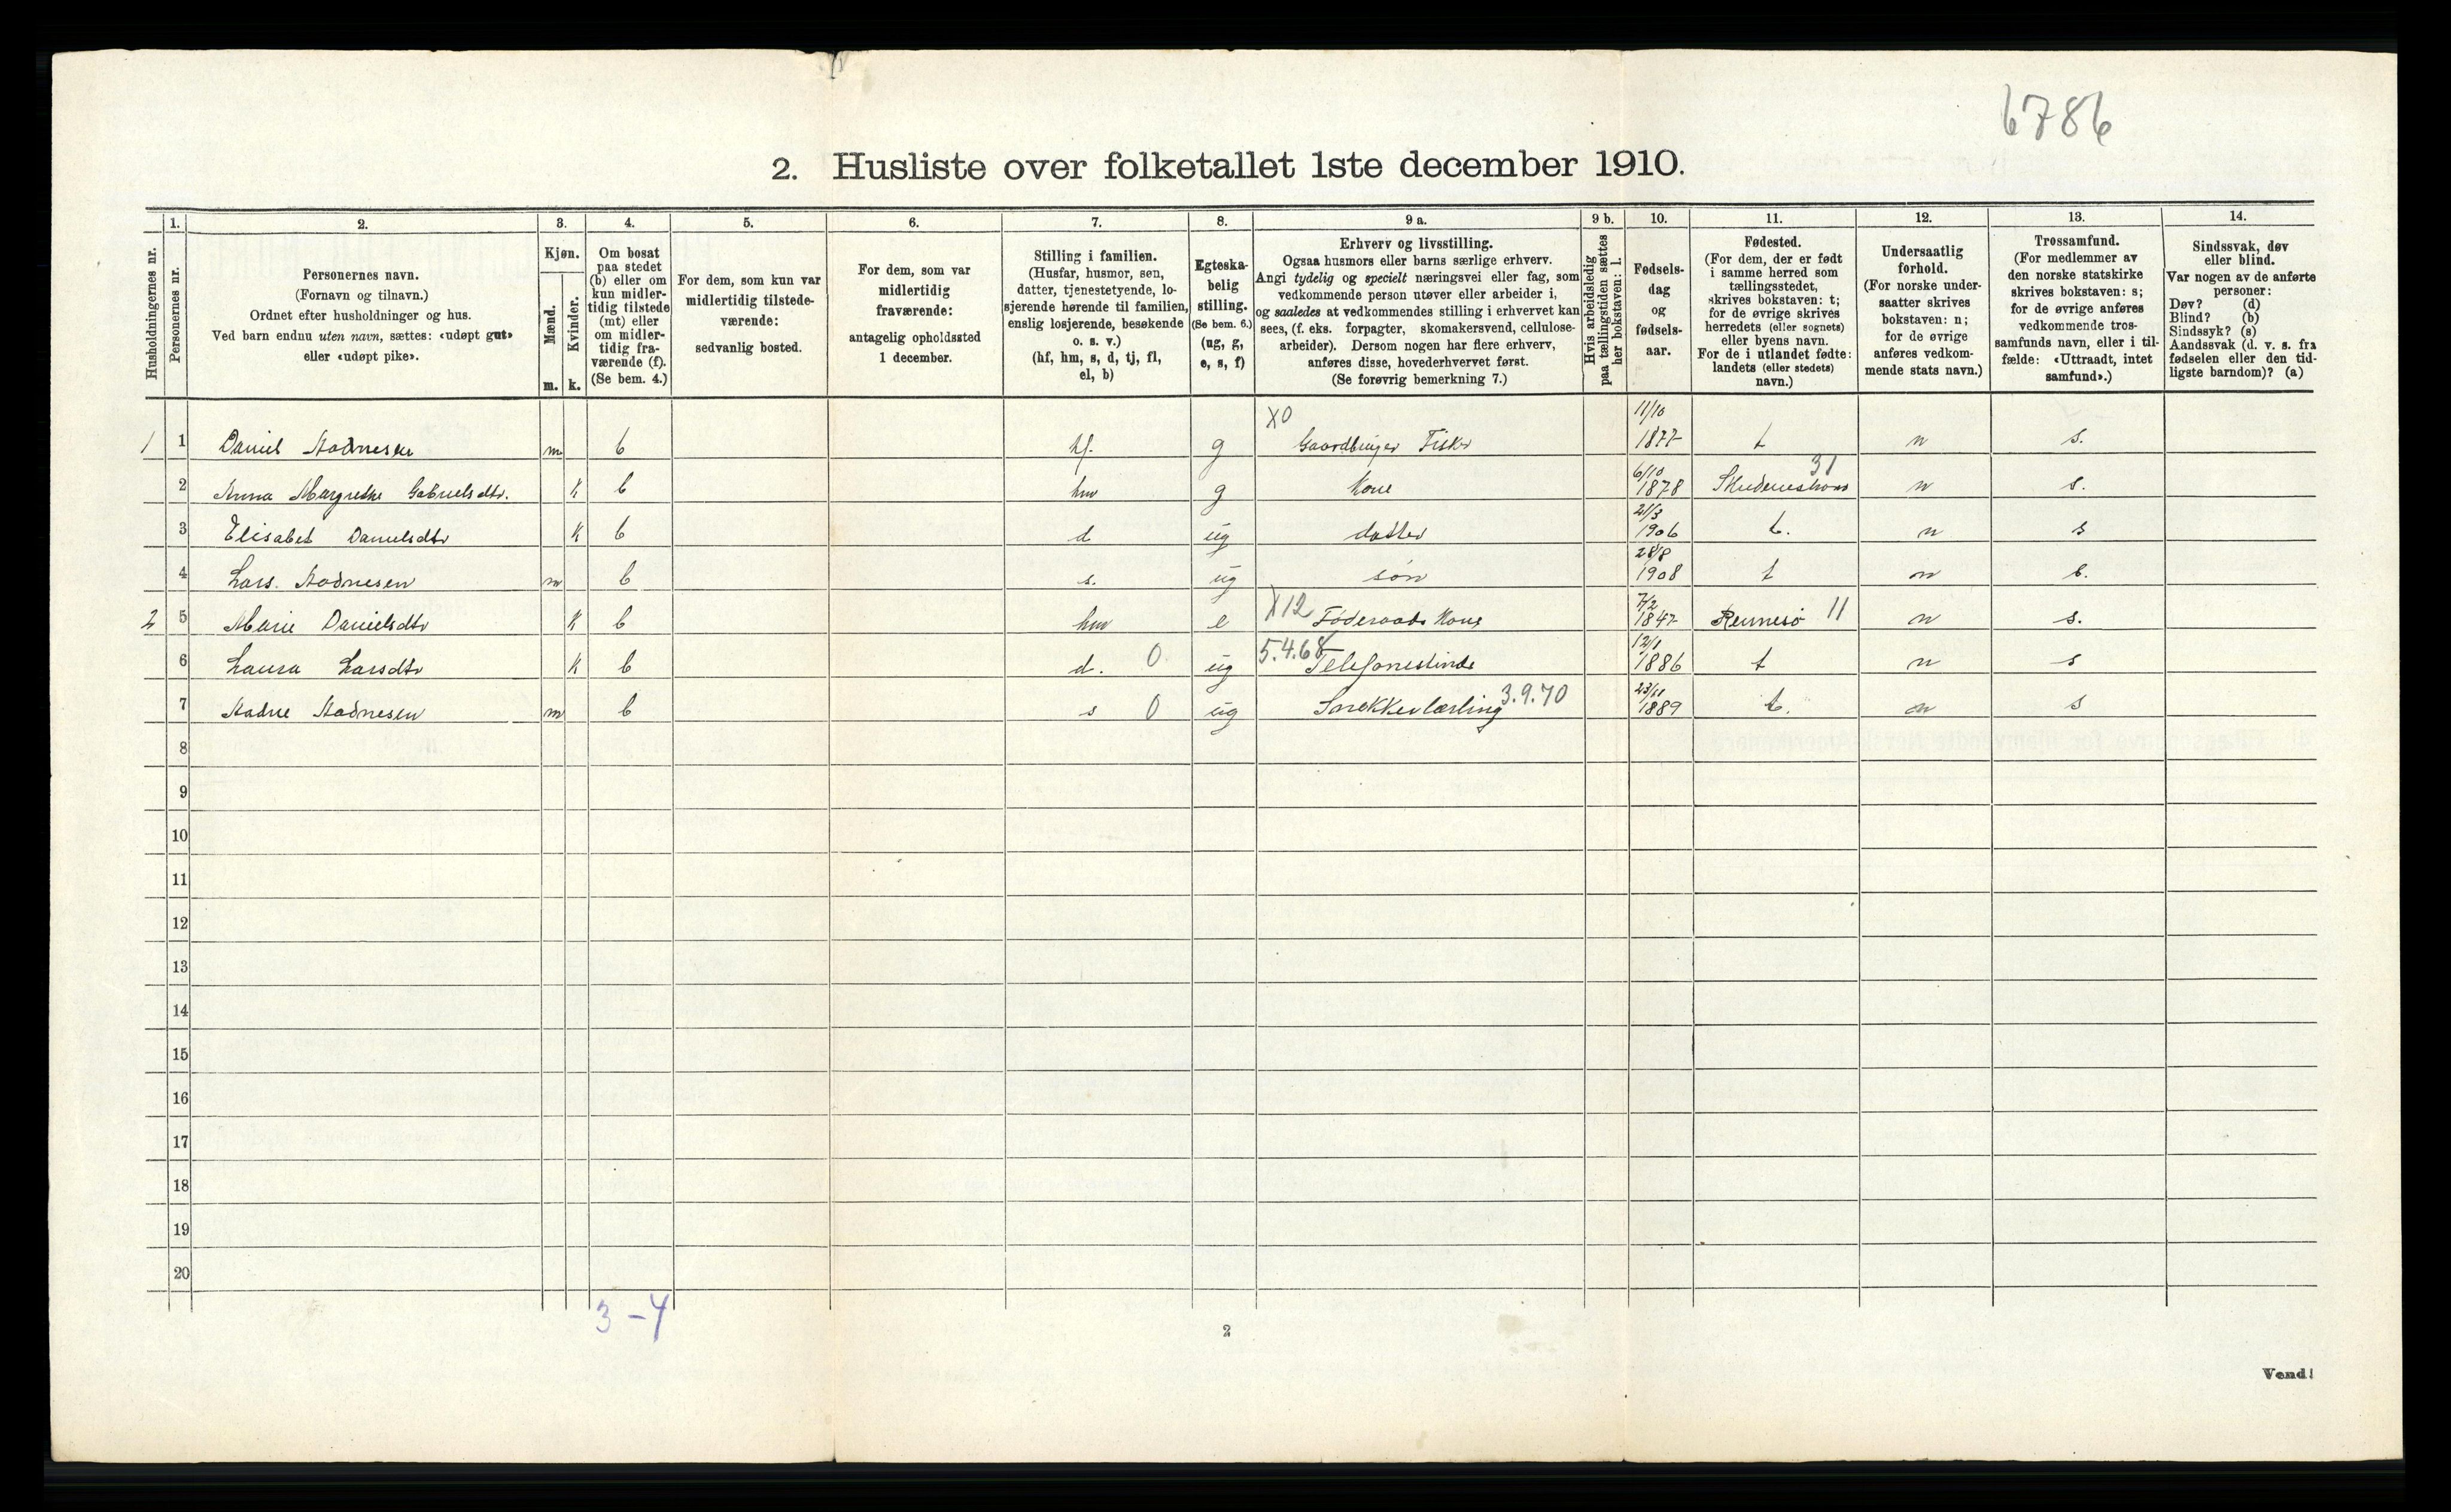 6786
2. Husliste over folketallet 1ste december 1910.
1. 2. 3. 4. 5. 6. 7. 8. 9 a. 9 b. 10. 11. 12. 13. 14.
Husholdningernes nr.
Personernes nr.
Personernes navn.
(Fornavn og tilnavn.)
Ordnet efter husholdninger og hus.
Ved barn endnu uten navn, sættes: «udøpt gut»
eller «udøpt pike».
Kjøn.
Mænd.
Kvinder.
m. k.
Om bosat
paa stedet
(b) eller om
kun midler-
tidig tilstede
(mt) eller
om midler-
tidig fra-
værende (f).
(Se bem. 4.)
For dem, som kun var
midlertidig tilstede-
værende:
sedvanlig bosted.
For dem, som var
midlertidig
fraværende:
antagelig opholdssted
1 december.
Stilling i familien.
(Husfar, husmor, søn,
datter, tjenestetyende, lo-
sjerende hørende til familien,
enslig losjerende, besøkende
o. s. v.)
(hf, hm, s, d, tj, fl,
el, b)
Egteska-
belig
stilling.
(Se bem. 6.)
(ug, g,
e, s, f)
Erhverv og livsstilling.
Ogsaa husmors eller barns særlige erhverv.
Angi tydelig og specielt næringsvei eller fag, som
vedkommende person utøver eller arbeider i,
og saaledes at vedkommendes stilling i erhvervet kan
sees, (f. eks. forpagter, skomakersvend, cellulose-
arbeider). Dersom nogen har flere erhverv,
anføres disse, hovederhvervet først.
(Se forøvrig bemerkning 7.)
Hvis arbeidsledig
paa tællingstiden sættes
her bokstaven: l.
Fødsels-
dag
og
fødsels-
aar.
Fødested.
(For dem, der er født
i samme herred som
tællingsstedet,
skrives bokstaven: t;
for de øvrige skrives
herredets (eller sognets)
eller byens navn.
For de i utlandet fødte:
landets (eller stedets)
navn.)
Undersaatlig
forhold.
(For norske under-
saatter skrives
bokstaven: n;
for de øvrige
anføres vedkom-
mende stats navn.)
Trossamfund.
(For medlemmer av
den norske statskirke
skrives bokstaven: s;
for de øvrige anføres
vedkommende tros-
samfunds navn, eller i til-
fælde: «Uttraadt, intet
samfund».)
Sindssvak, døv
eller blind.
Var nogen av de anførte
personer:
Døv? (d)
Blind? (b)
Sindssyk? (s)
Aandssvak (d. v. s. fra
fødselen eller den tid-
ligste barndom)? (a)
1 1 Daniel Aadnesen m b hf. g X0 Gaardbruger Fisker 11/10 1877 t n s.
2 Anna Margrethe Gabrielsdtr. k b hm g Kone 6/10 1878 31 n s.
3 Elisabet Danielsdtr k b d ug datter 21/3 1906 t. n s
4 Lars. Aadnesen m b s. ug søn 28/8 1908 t n s.
2 5 Marie Danielsdtr k b hm e X12 Føderaads Kone 7/2 1847 Rennesø 11 n s.
6 Laura Larsdtr k b d. 0 ug 5.4.68 Telefonistinde 12/1 1886 t n s
7 Aadne Aadnesen m b s 0 ug Snekkerlærling 3.9.70 23/11 1889 t. n s
8
9
10
11
12
13
14
15
16
17
18
19
20
3-4
2
Vend!